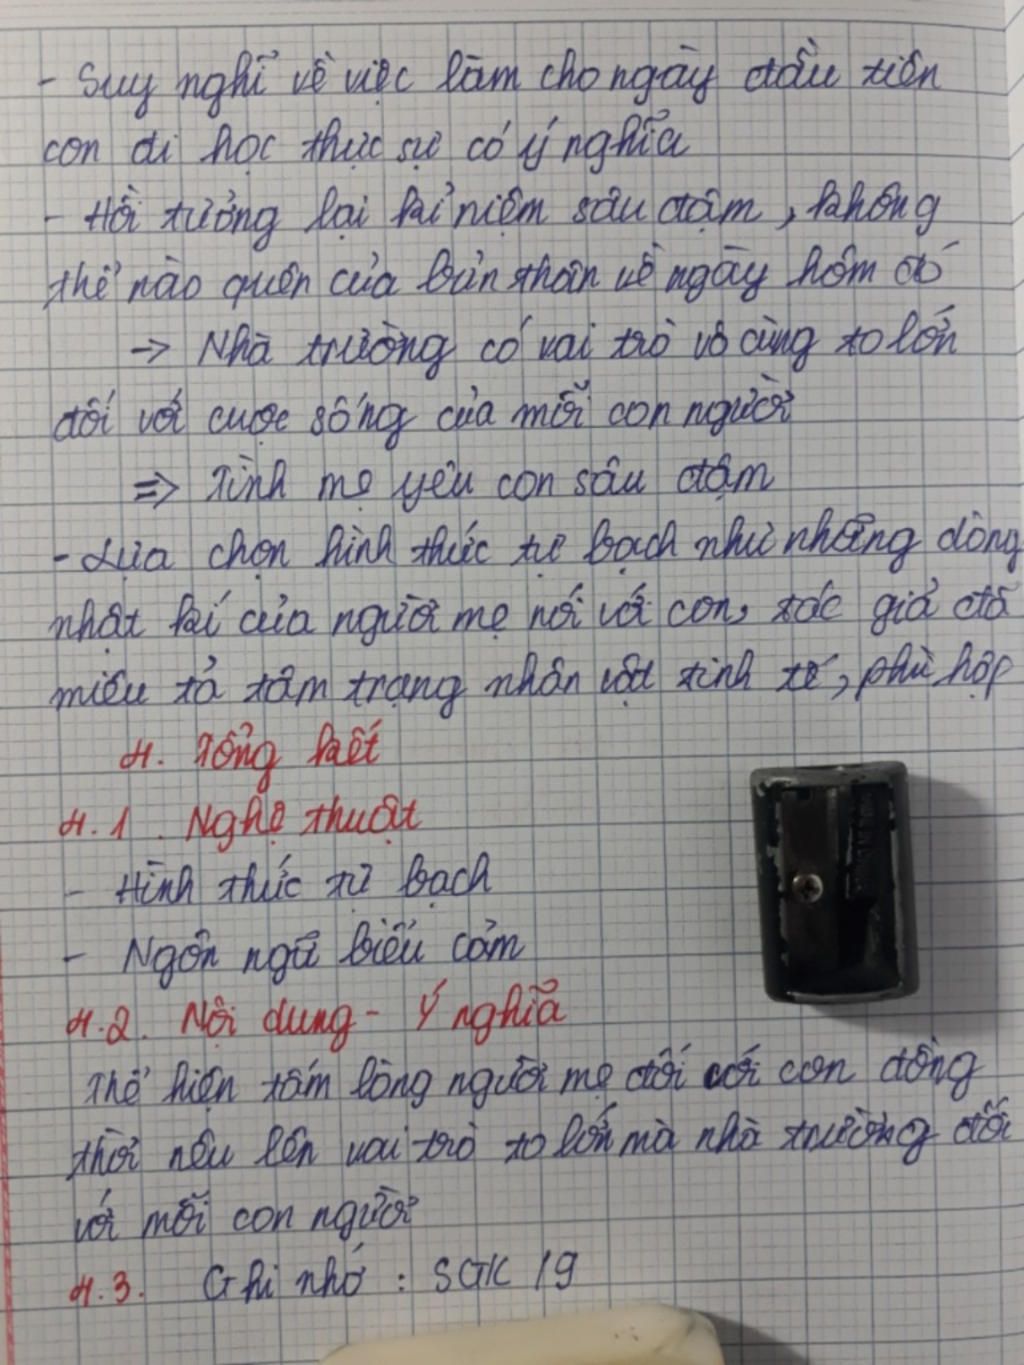 - Suy nghĩ về việc làm cho ngày đầu tiên
con đi học thực sự có ý nghĩa
- Hồi tưởng lại kỉ niệm sâu đậm, không
thể nào quên của bản thân về ngày hôm đó
→ Nhà trường có vai trò vô cùng to lớn
đối với cuộc sống của mỗi con người
⇒ Tình mẹ yêu con sâu đậm
- Lựa chọn hình thức tự bạch như những dòng
nhật kí của người mẹ nói với con, tác giả đã
miêu tả tâm trạng nhân vật tinh tế, phù hợp
4. Tổng kết
4.1. Nghệ thuật
- Hình thức tự bạch
- Ngôn ngữ biểu cảm
4.2. Nội dung - Ý nghĩa
Thể hiện tấm lòng người mẹ đối với con đồng
thời nêu lên vai trò to lớn mà nhà trường đối
với mỗi con người
4.3. Ghi nhớ: SGK /9